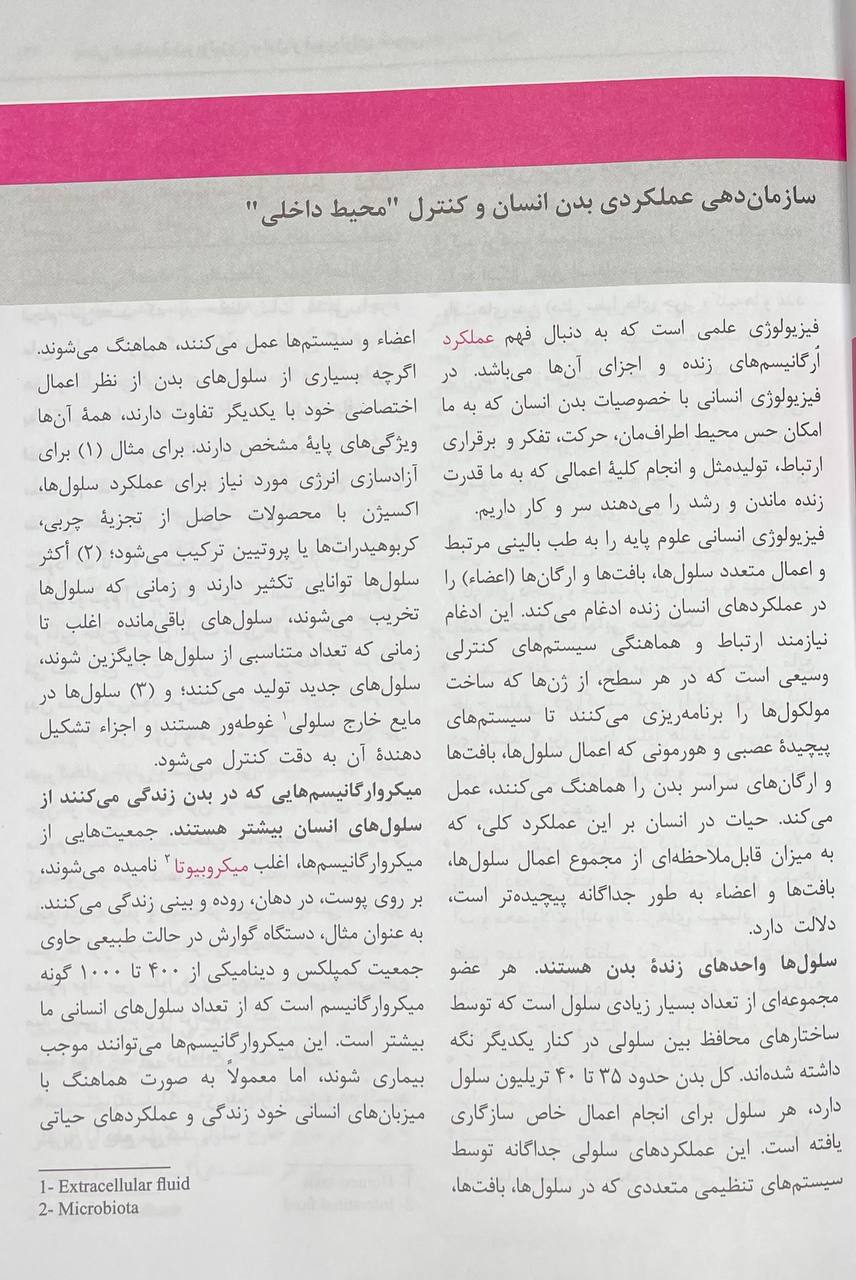 سازمان‌دهی عملکردی بدن انسان و کنترل "محیط داخلی"
فیزیولوژی علمی است که به دنبال فهم عملکرد
اُرگانیسم‌های زنده و اجزای آن‌ها می‌باشد. در
فیزیولوژی انسانی با خصوصیات بدن انسان که به ما
امکان حس محیط اطراف‌مان، حرکت، تفکر و برقراری
ارتباط، تولیدمثل و انجام کلیهٔ اعمالی که به ما قدرت
زنده ماندن و رشد را می‌دهند سر و کار داریم.
فیزیولوژی انسانی علوم پایه را به طب بالینی مرتبط
و اعمال متعدد سلول‌ها، بافت‌ها و ارگان‌ها (اعضاء) را
در عملکردهای انسان زنده ادغام می‌کند. این ادغام
نیازمند ارتباط و هماهنگی سیستم‌های کنترلی
وسیعی است که در هر سطح، از ژن‌ها که ساخت
مولکول‌ها را برنامه‌ریزی می‌کنند تا سیستم‌های
پیچیدهٔ عصبی و هورمونی که اعمال سلول‌ها، بافت‌ها
و ارگان‌های سراسر بدن را هماهنگ می‌کنند، عمل
می‌کند. حیات در انسان بر این عملکرد کلی، که
به میزان قابل‌ملاحظه‌ای از مجموع اعمال سلول‌ها،
بافت‌ها و اعضاء به طور جداگانه پیچیده‌تر است،
دلالت دارد.
سلول‌ها واحدهای زندهٔ بدن هستند. هر عضو
مجموعه‌ای از تعداد بسیار زیادی سلول است که توسط
ساختارهای محافظ بین سلولی در کنار یکدیگر نگه
داشته شده‌اند. کل بدن حدود ۳۵ تا ۴۰ تریلیون سلول
دارد، هر سلول برای انجام اعمال خاص سازگاری
یافته است. این عملکردهای سلولی جداگانه توسط
سیستم‌های تنظیمی متعددی که در سلول‌ها، بافت‌ها،
اعضاء و سیستم‌ها عمل می‌کنند، هماهنگ می‌شوند.
اگرچه بسیاری از سلول‌های بدن از نظر اعمال
اختصاصی خود با یکدیگر تفاوت دارند، همهٔ آن‌ها
ویژگی‌های پایهٔ مشخص دارند. برای مثال (۱) برای
آزادسازی انرژی مورد نیاز برای عملکرد سلول‌ها،
اکسیژن با محصولات حاصل از تجزیهٔ چربی،
کربوهیدرات‌ها یا پروتیین ترکیب می‌شود؛ (۲) أکثر
سلول‌ها توانایی تکثیر دارند و زمانی که سلول‌ها
تخریب می‌شوند، سلول‌های باقی‌مانده اغلب تا
زمانی که تعداد متناسبی از سلول‌ها جایگزین شوند،
سلول‌های جدید تولید می‌کنند؛ و (۳) سلول‌ها در
مایع خارج سلولی۱ غوطه‌ور هستند و اجزاء تشکیل
دهندهٔ آن به دقت کنترل می‌شود.
میکروارگانیسم‌هایی که در بدن زندگی می‌کنند از
سلول‌های انسان بیشتر هستند. جمعیت‌هایی از
میکروارگانیسم‌ها، اغلب میکروبیوتا۲ نامیده می‌شوند،
بر روی پوست، در دهان، روده و بینی زندگی می‌کنند.
به عنوان مثال، دستگاه گوارش در حالت طبیعی حاوی
جمعیت کمپلکس و دینامیکی از ۴۰۰ تا ۱۰۰۰ گونه
میکروارگانیسم است که از تعداد سلول‌های انسانی ما
بیشتر است. این میکروارگانیسم‌ها می‌توانند موجب
بیماری شوند، اما معمولاً به صورت هماهنگ با
میزبان‌های انسانی خود زندگی و عملکردهای حیاتی
1- Extracellular fluid
2- Microbiota